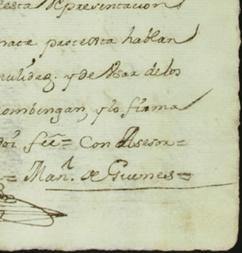 esta Representacion
hace protesta hablan
nulidag. y de Usar de los
combengan, y lo firma
doi fee = Con Asesor =
= Man.l de Guemes =